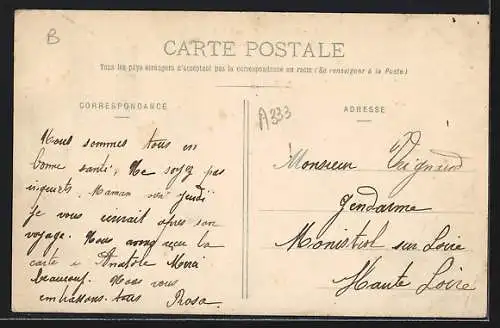 B
CARTE POSTALE
Tous les pays étrangers n'acceptent pas la correspondance au recto (Se renseigner à la Poste)
CORRESPONDANCE
A333
ADRESSE
Nous sommes tous en
bonne santé, Ne soyez pas
inquiets. Maman Jeudi
je vous après son
voyage. Nous avons reçu la
carte à Anatole Merci
beaucoup. Nous vous
embrassons tous Rosa
Monsieur
Gendarme
Monistrol sur Loire
Haute Loire